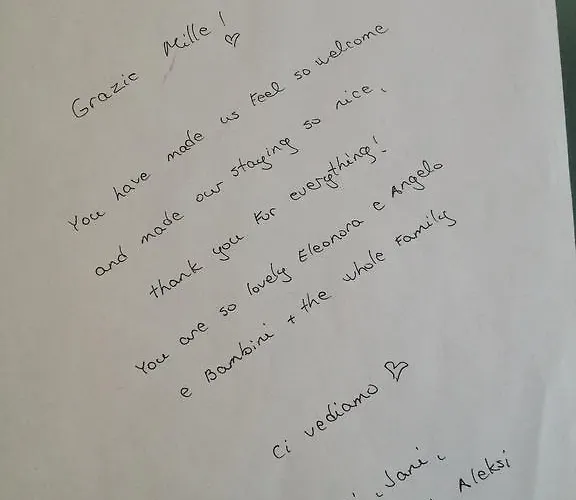 Grazie Mille! ♡
You have made us feel so welcome
and made our staying so nice,
thank you for everything!
You are so lovely Eleonora e Angelo
e Bambini + the whole Family
Ci vediamo ♡
, Jani,
Aleksi